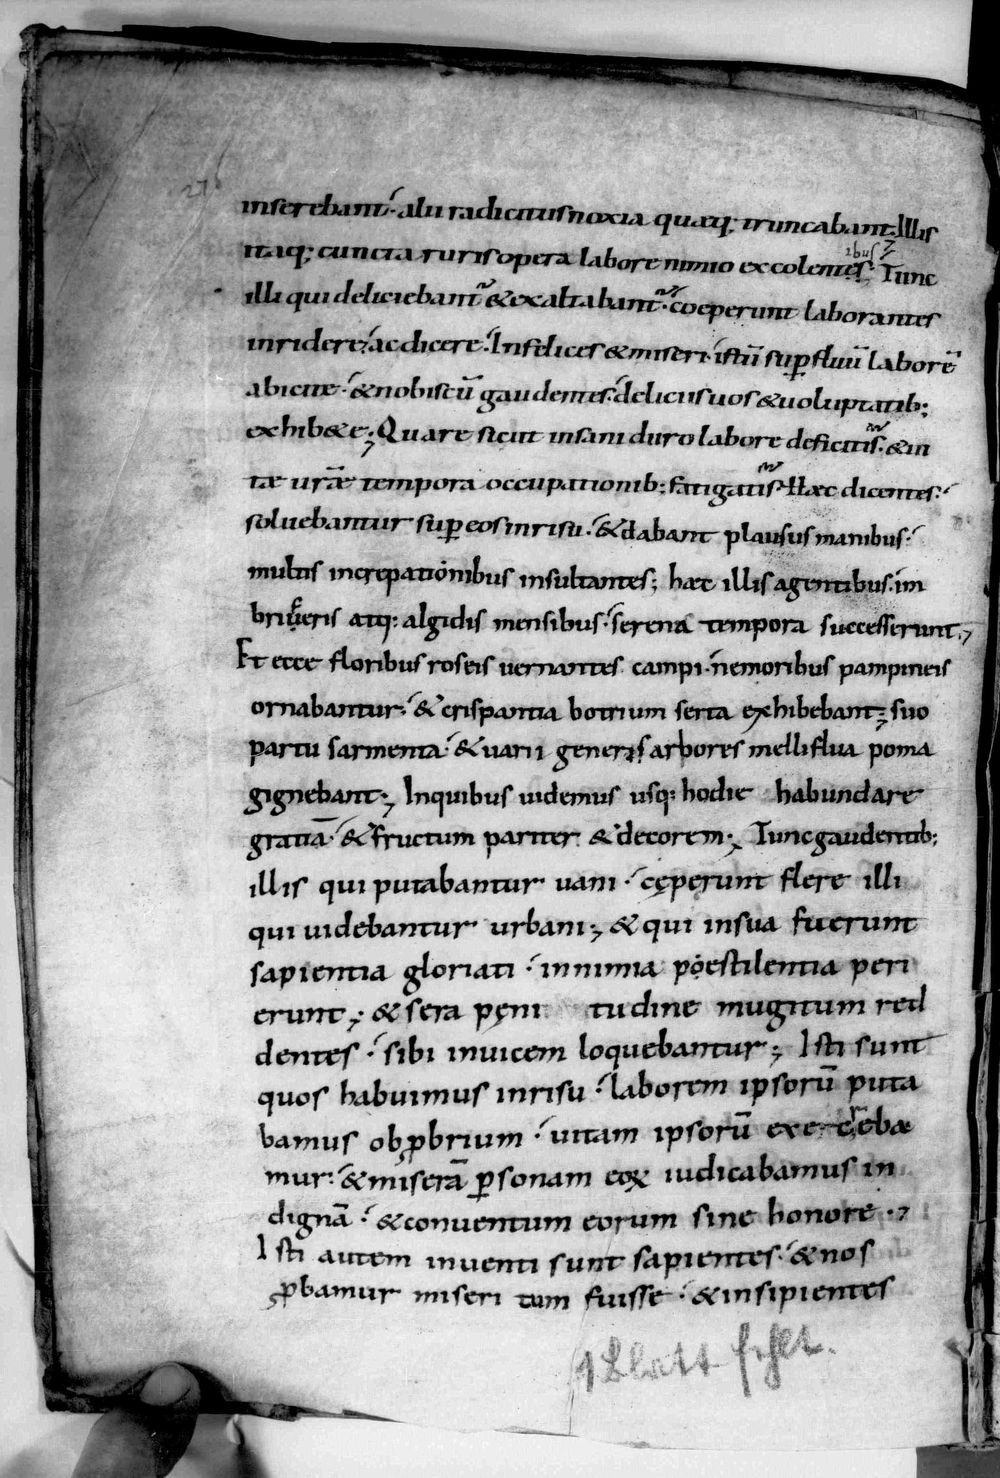 inserebant· alii radicitus noxia quaq; truncabant. Illis
itaq; cuncta ruris opera labore nimio excolentes ibus; Tunc
illi qui deliciebant᷑ & exaltabant᷑· coeperunt laborantes
inridere· ac dicere· Infelices & miseri· istū suꝑfluū laborē
abicite· & nobiscū gaudentes· deliciis uos & uoluptatib;
exhib&e; Quare sicut insani duro labore deficitis· & in
tæ urǣ tempora occupationib; fatigatis· Hæc dicentes·
soluebantur suꝑ eos in risu· & dabant plausus manibus·
multis increpationibus insultantes; hæc illis agentibus· im
briferis atq; algidis mensibus· serena tempora successerunt;
Et ecce floribus roseis uernantes campi· nemoribus pampineis
ornabantur· & crispantia botrium serta exhibebant; suo
partu sarmenta· & uarii generis arbores melliflua poma
gignebant; Inquibus uidemus usq; hodie habundare
gratiā· & fructum pariter & decorem; Tunc gaudentib;
illis qui putabantur uani· cęperunt flere illi
qui uidebantur urbani; & qui in sua fuerunt
sapientia gloriati· in nimia poestilentia peri
erunt; & sera pęni tudine mugitum red
dentes· sibi inuicem loquebantur; Isti sunt
quos habuimus inrisu· laborem ipsorū puta
bamus obꝓbrium· uitam ipsorū execrebæ
mur· & miserā ꝑsonam eoꝝ iudicabamus in
dignā· & conuentum eorum sine honore·;
Isti autem inuenti sunt sapientes· & nos
ꝓbamur miseri tam fuisse· & insipientes
1 Blatt fehlt.